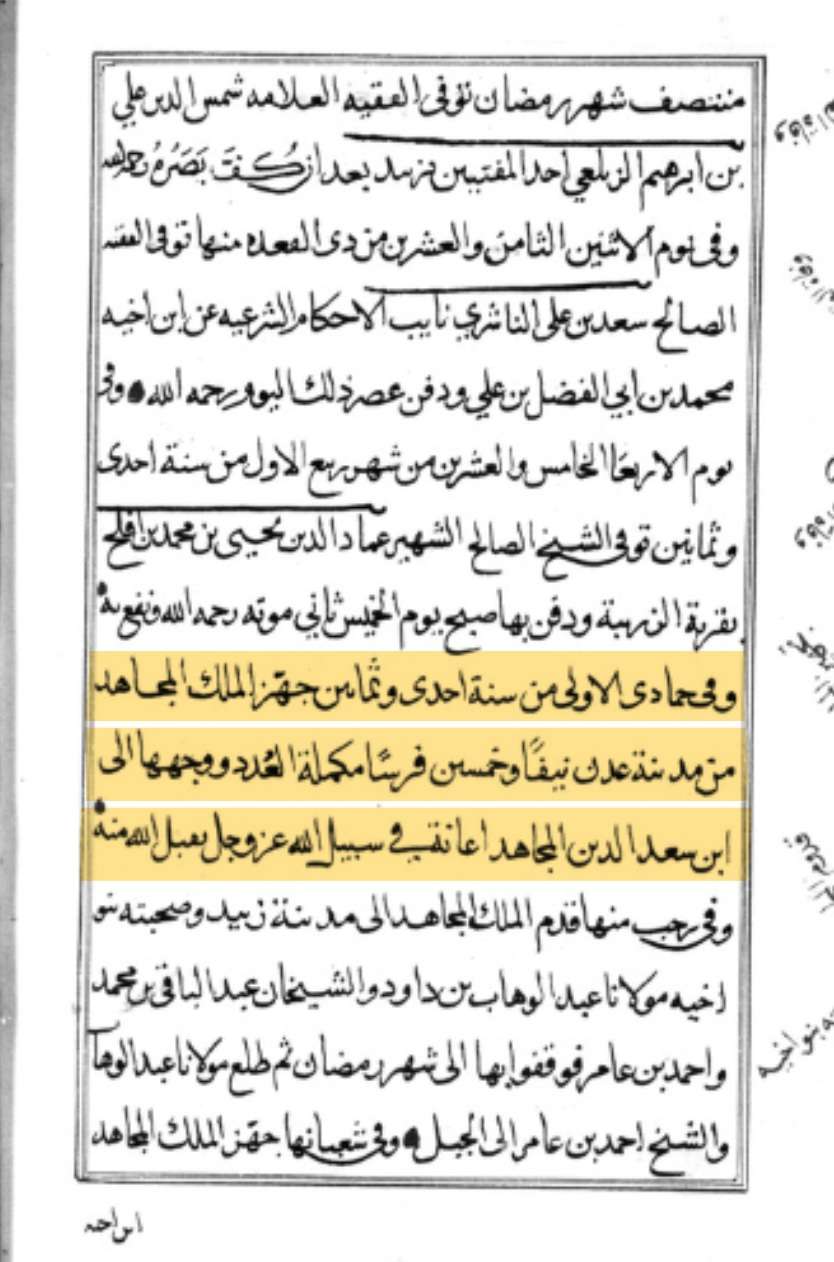 منتصف شهر رمضان توفى الفقيه العلامه شمس الدين علي
بن ابرهيم الزيلعي احد المفتيين بزبيد بعد ان كُفَّ بَصَرُهُ رحمه الله
وفى يوم الاثنين الثامن والعشرين من ذى القعده منها توفى الفقيه
الصالح سعد بن على الناشري نايب الاحكام الشرعيه عن ابن اخيه
محمد بن ابي الفضل بن علي ودفن عصر ذلك اليوم رحمه الله وفى
يوم الاربعا الخامس والعشرين من شهر ربيع الاول من سنة احدى
وثمانين توفى الشيخ الصالح الشهير عماد الدين يحيى بن محمد بن افلح
بقرية ودفن بها صبح يوم الخميس ثاني موته رحمه الله ونفع به
وفى جمادى الاولى من سنة احدى وثمانين جهّز الملك المجاهد
من مدينة عدن نيفًا وخمسين فرسًا مكملة العُدد ووجهها الى
ابن سعد الدين المجاهد اعانة في سبيل الله عز وجل تقبل الله منه
وفى رجب منها قدم الملك المجاهد الى مدينة زبيد وصحبته بنو
اخيه مولانا عبد الوهاب بن داود والشيخان عبد الباقى بن محمد
واحمد بن عامر فوقفوا بها الى شهر رمضان ثم طلع مولانا عبد الوهاب
والشيخ احمد بن عامر الى الجبل وفى شعبانها جهّز الملك المجاهد
ابن اخيه